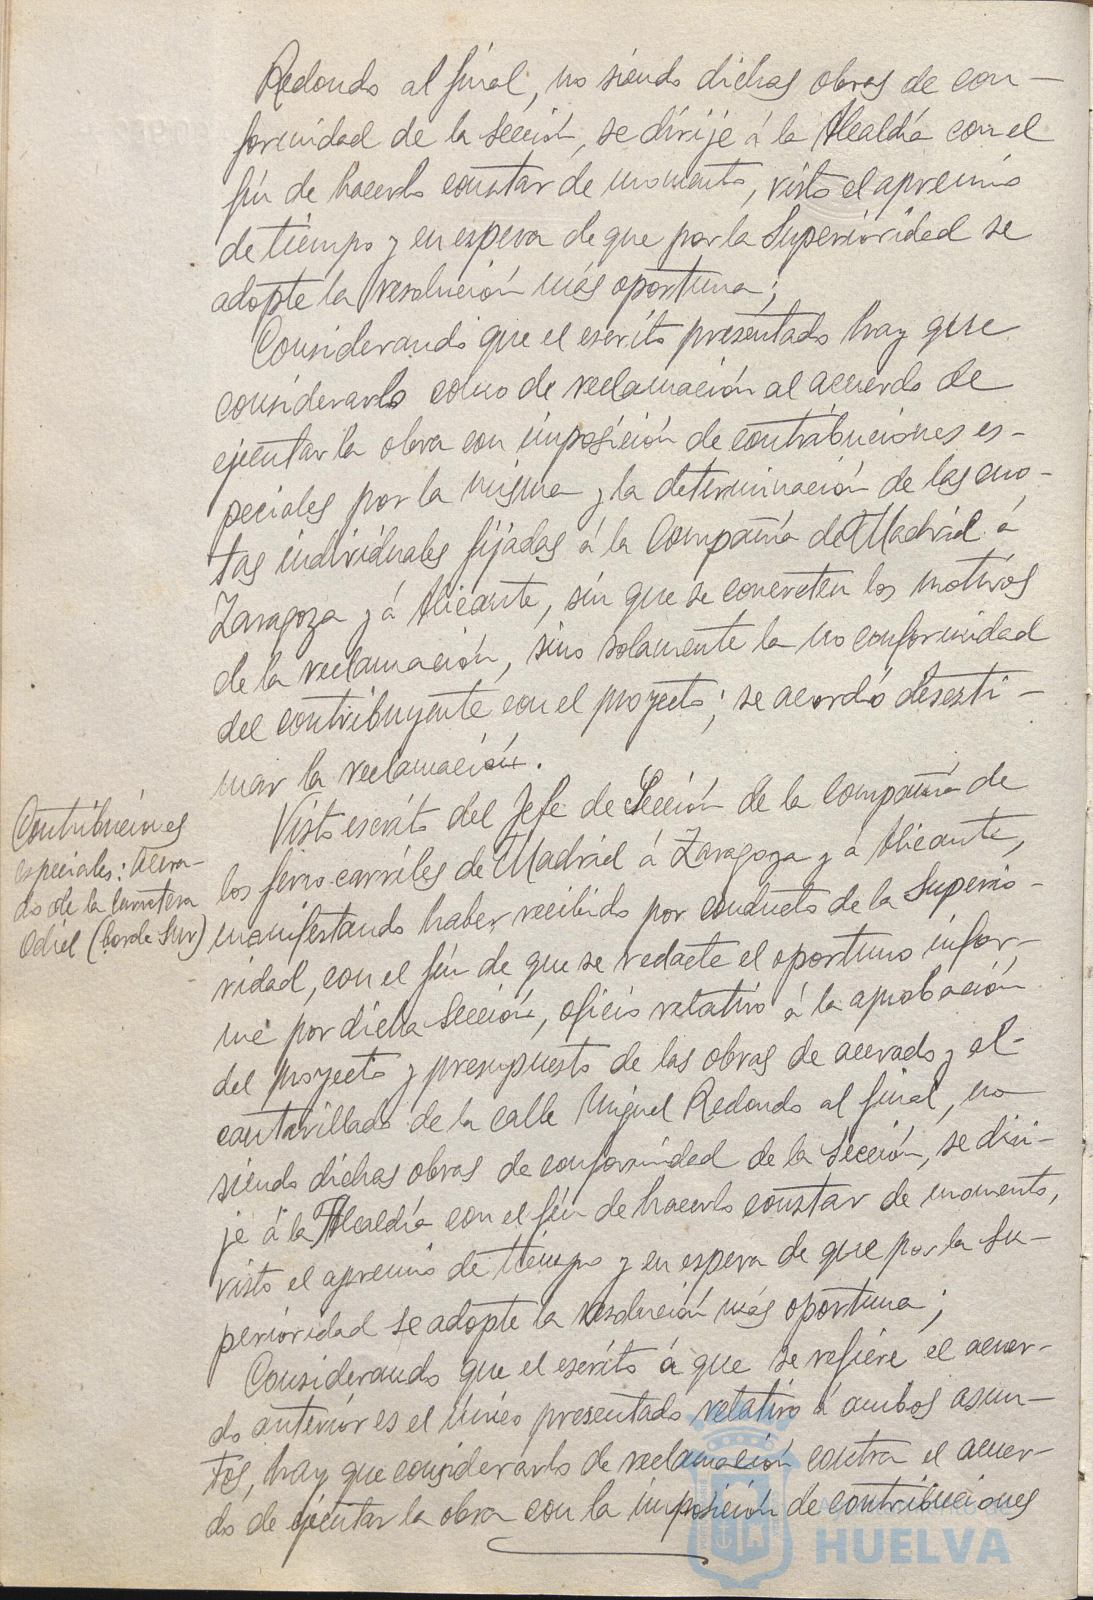 Redondo al final, no siendo dichas obras de con-
formidad de la Sección, se dirije á la Alcaldía con el
fin de hacerlo constar de momento, visto el apremio
de tiempo y en espera de que por la Superioridad se
adopte la resolución más oportuna;
Considerando que el escrito presentado hay que
considerarlo como de reclamación al acuerdo de
ejecutar la obra con imposición de contribuciones es-
peciales por la misma y la determinación de las cuo-
tas individuales fijadas á la Compañía de Madrid á
Zaragoza y á Alicante, sin que se concreten los motivos
de la reclamación, sino solamente la no conformidad
del contribuyente con el proyecto; se acordó desesti-
mar la reclamación.
Contribuciones
especiales: Acera-
do de la Carretera
Odiel (borde Sur)
Visto escrito del Jefe de Sección de la Compañía de
los ferro-carriles de Madrid á Zaragoza y á Alicante,
manifestando haber recibido por conducto de la Superio-
ridad, con el fin de que se redacte el oportuno infor-
me por dicha Sección, oficio relativo á la aprobación
del proyecto y presupuesto de las obras de acerado y al-
cantarillado de la calle Miguel Redondo al final, no
siendo dichas obras de conformidad de la Sección, se diri-
je á la Alcaldía con el fin de hacerlo constar de momento,
visto el apremio de tiempo y en espera de que por la Su-
perioridad se adopte la resolución más oportuna;
Considerando que el escrito á que se refiere el acuer-
do anterior es el único presentado relativo á ambos asun-
tos, hay que considerarlo de reclamación contra el acuer-
do de ejecutar la obra con la imposición de contribuciones
Ayuntamiento de
HUELVA